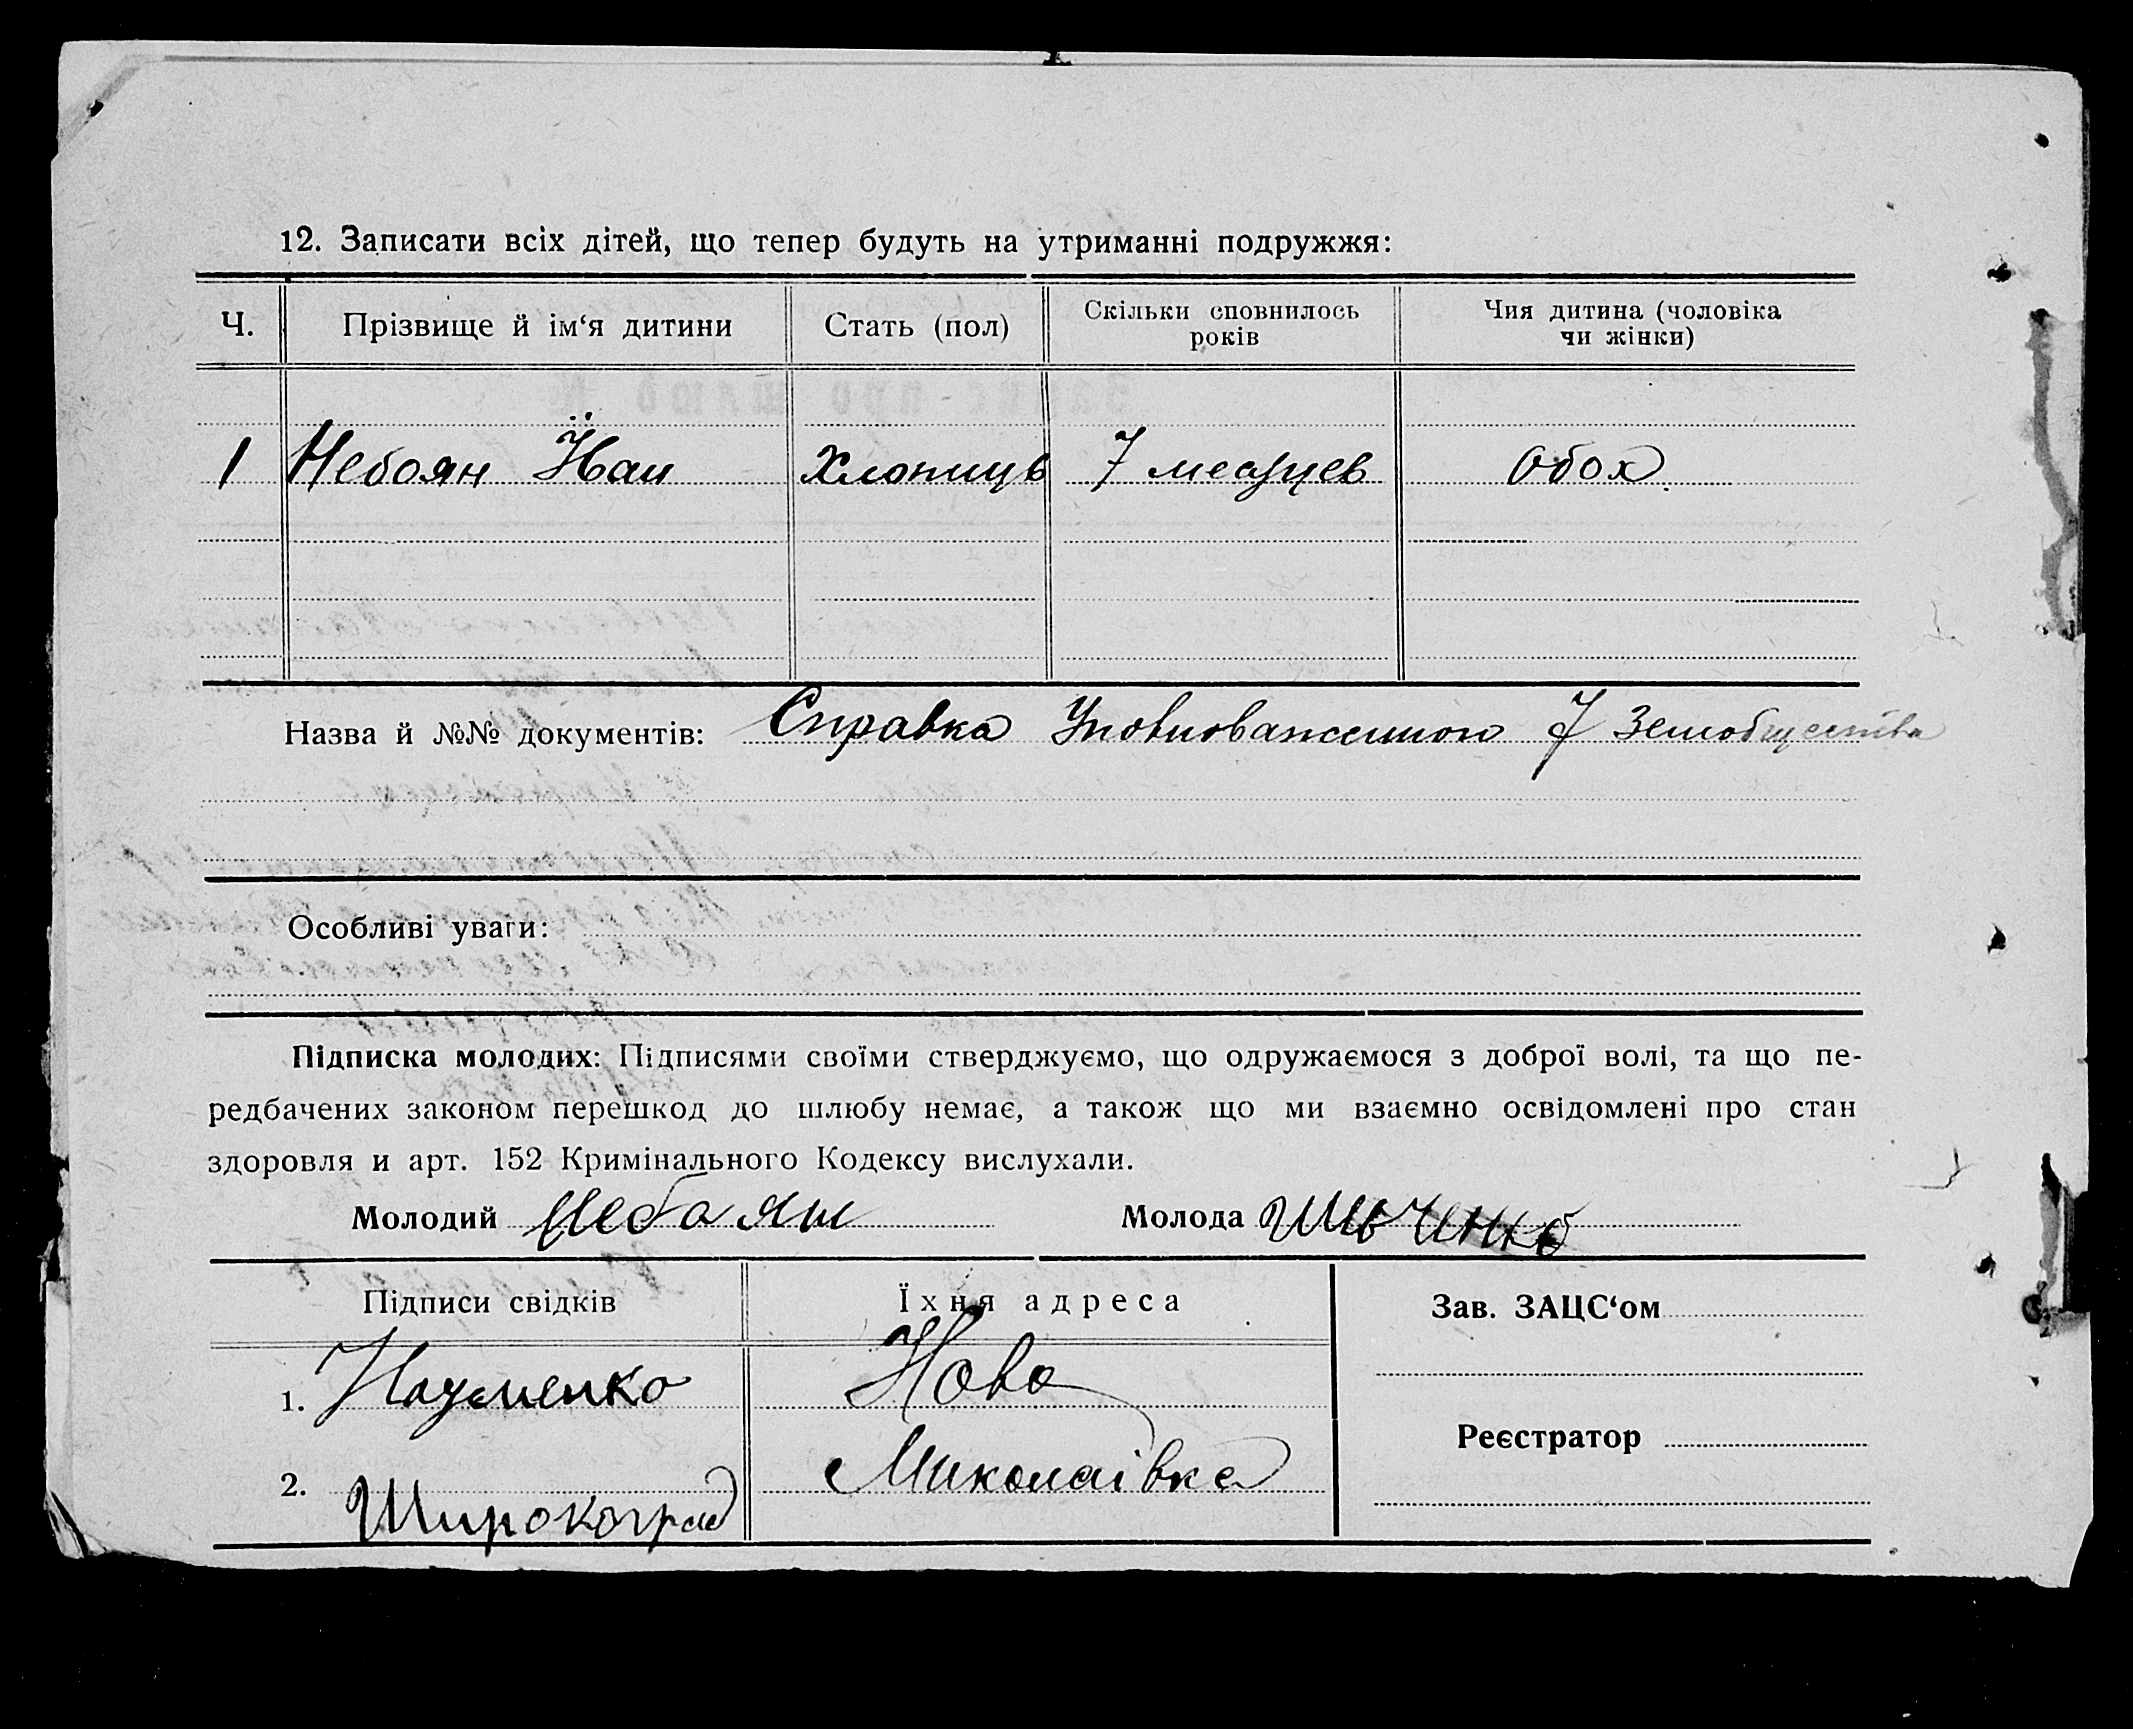 12. Записати всіх дітей, що тепер будуть на утриманні подружжя:
Ч. Прізвище й ім‘я дитини Стать (пол) Скільки сповнилось років Чия дитина (чоловіка чи жінки)
1 Небоян Хлопиць 7 меаяцев обох.
Назва й №№ документів: Справка Уповноваженного 7 Земобщества
Особливі уваги:
Підписка молодих: Підписями своїми стверджуємо, що одружаємося з доброї волі, та що пе-
редбачених законом перешкод до шлюбу немає, а також що ми взаємно освідомлені про стан
здоровля и арт. 152 Кримінального Кодексу вислухали.
Молодий Небаян Молода
Підписи свідків Їхня адреса Зав. ЗАЦС‘ом
1. Науменко Ново
Реєстратор
2. Широкоград Миколаівка